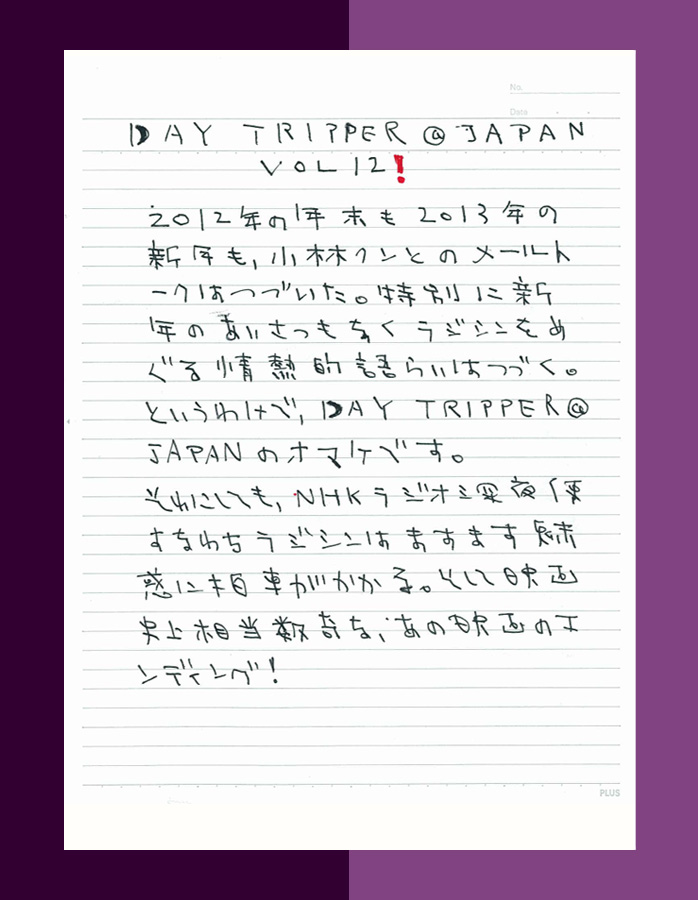 No.
Date
DAY TRIPPER @ JAPAN
VOL 12!
2012年の年末も2013年の
新年も,小林クンとのメールト
ークはつづいた。特別に新
年のあいさつもなくラジシンをめ
ぐる情熱的語らいはつづく。
というわけで,DAY TRIPPER@
JAPANのオマケです。
それにしても,NHKラジオ深夜便
すなわちラジシンはますます魅
惑に拍車がかかる。そして映画
史上相当数奇な,あの映画のエ
ンディング!
PLUS